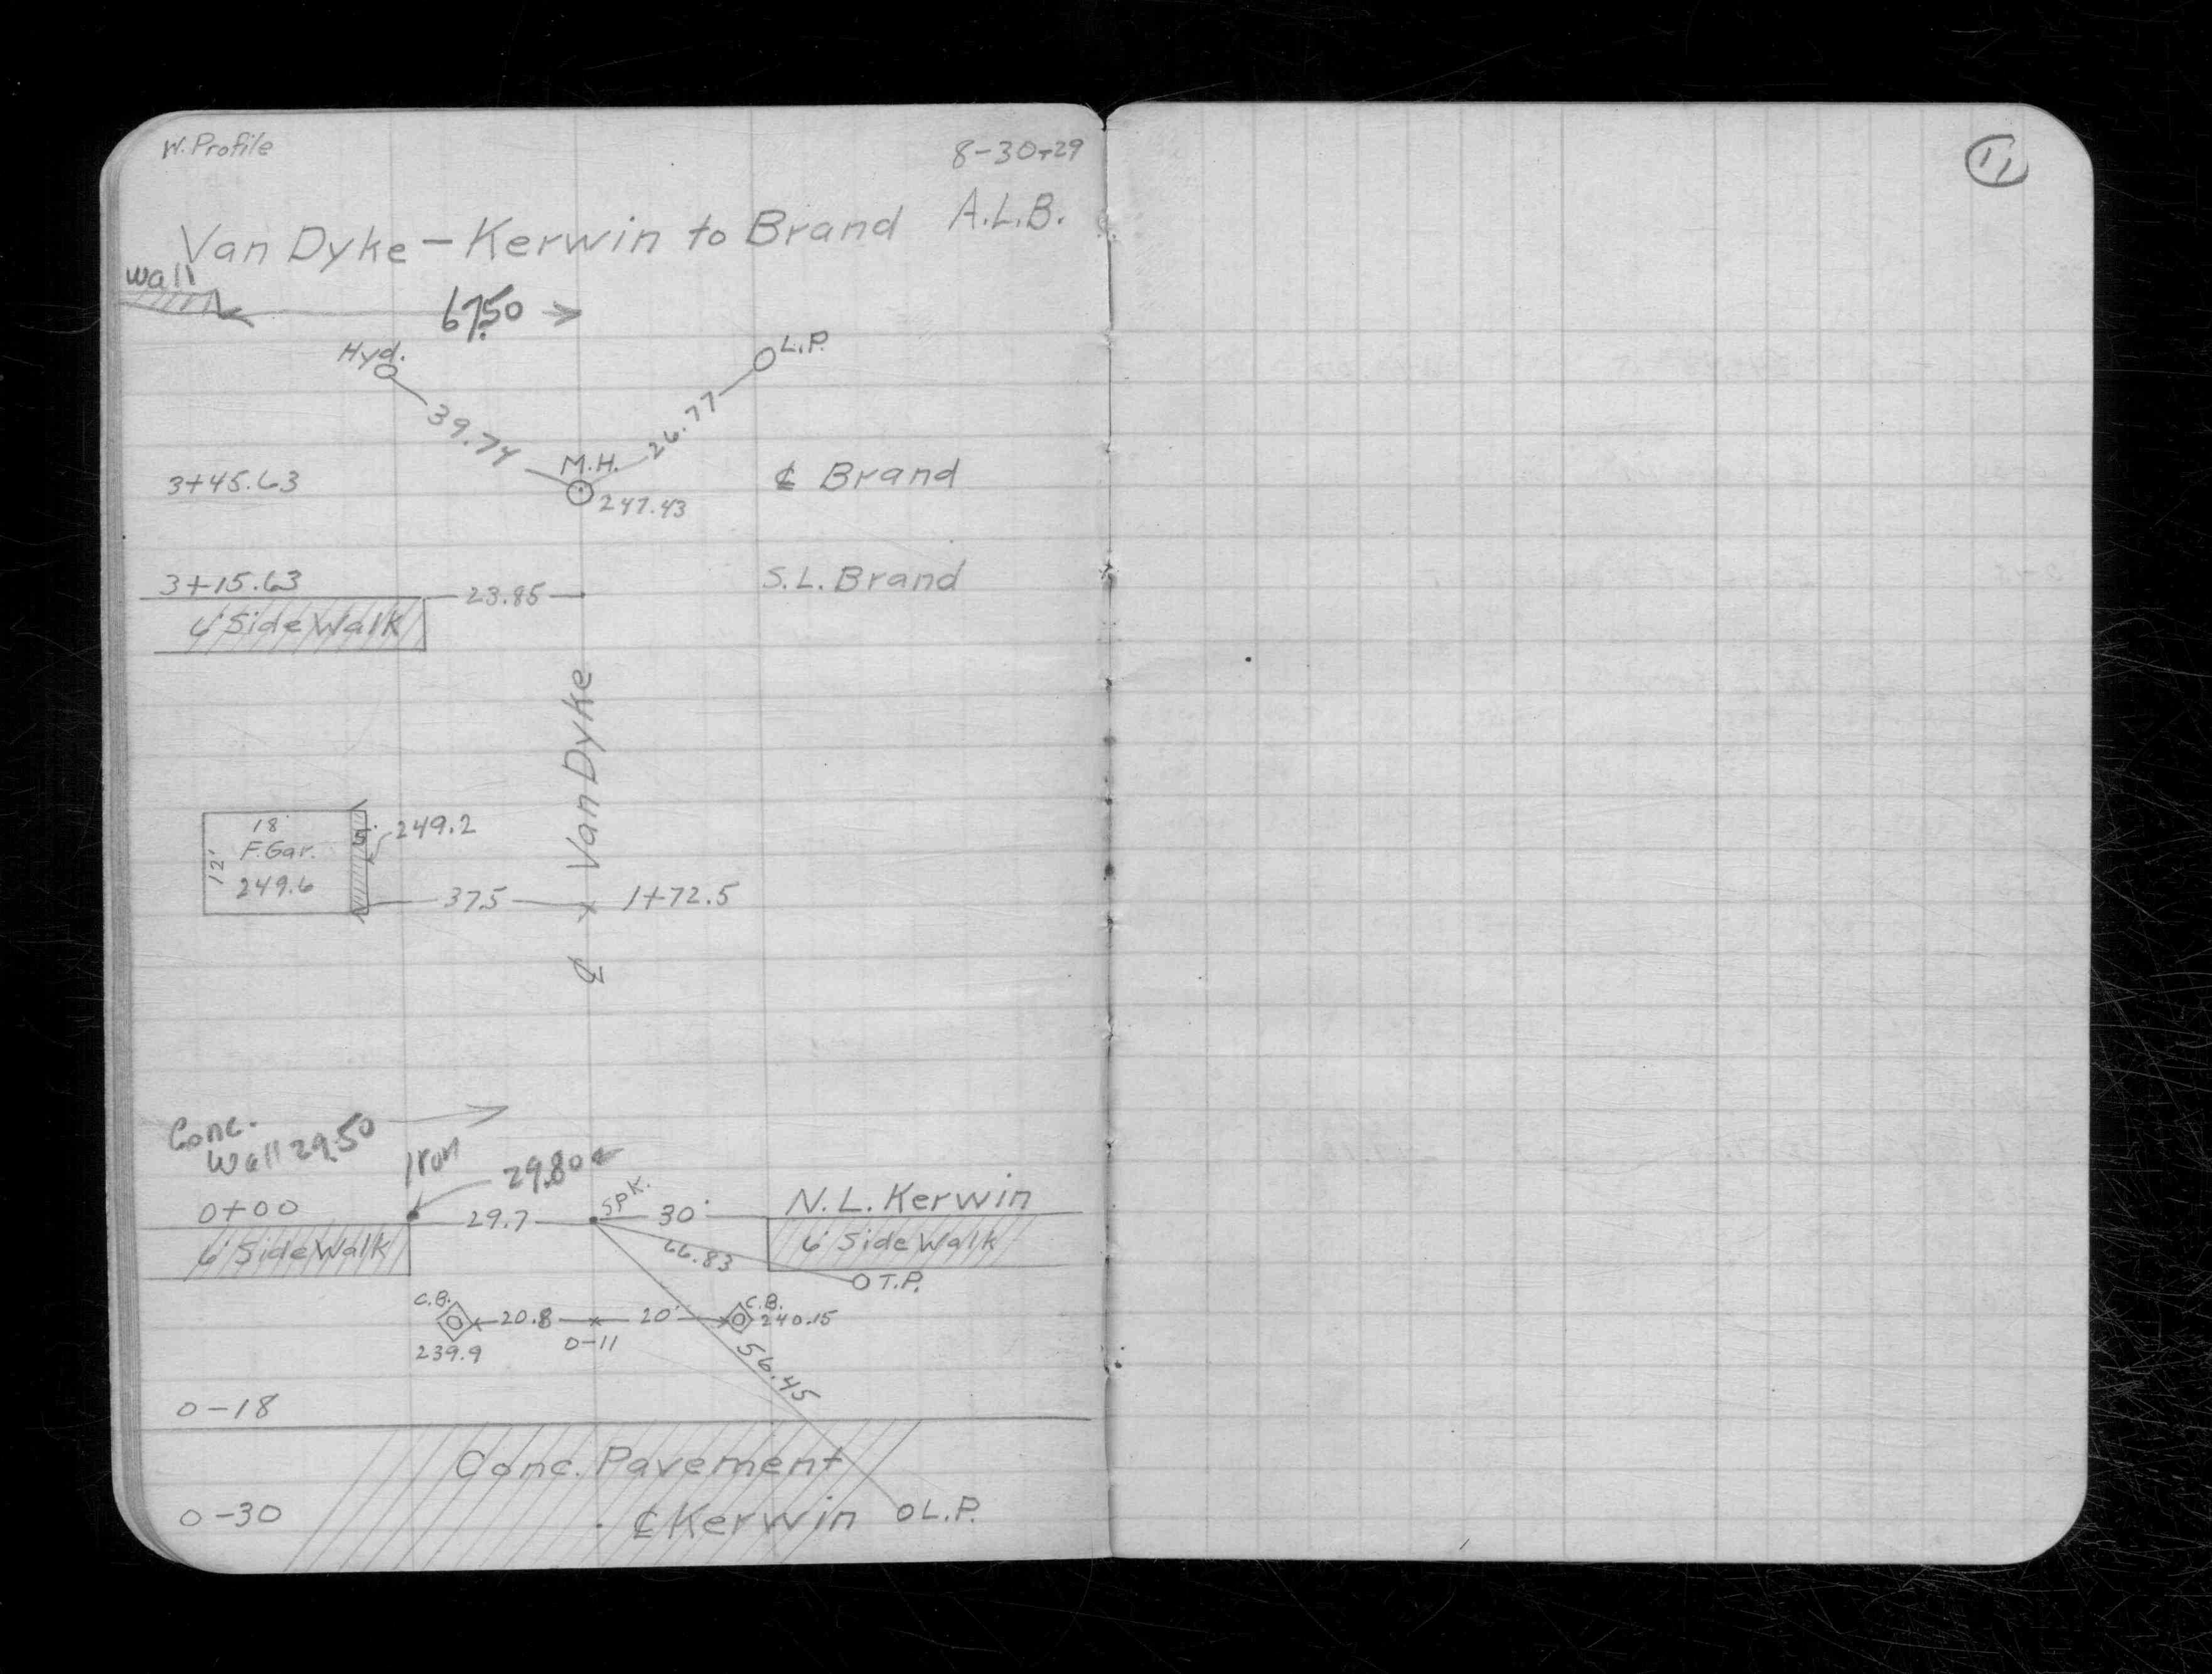 W. Profile 8-30-29
Van Dyke - Kerwin to Brand A.L.B.
Wall
67.50
Hyd. L.P.
39.74 26.77
3+45.63 M.H. ℄ Brand
247.43
3+15.63 23.85 S.L. Brand
6' Side Walk
℄ Van Dyke
18'
F. Gar. 5' 249.2
12' 249.6
37.5 1+72.5
Conc.
Wall 29.50
Iron 29.80
0+00 29.7 Spk. 30' N.L. Kerwin
6' Side Walk 66.83 6' Side Walk
T.P.
C.B. 20.8 20' C.B. 240.15
239.9 0-11
56.45
0-18
Conc. Pavement
0-30 ℄ Kerwin L.P.
11